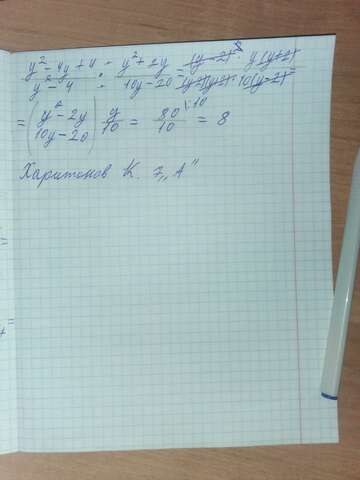 (y² - 4y + 4)/(y² - 4) · (y² + 2y)/(10y - 20) = ((y-2)² · y(y+2))/((y-2)(y+2) · 10(y-2)) =
= (y² - 2y)/(10y - 20) y/10 = 80/10 \10 = 8
Харитонов К. 7„А"